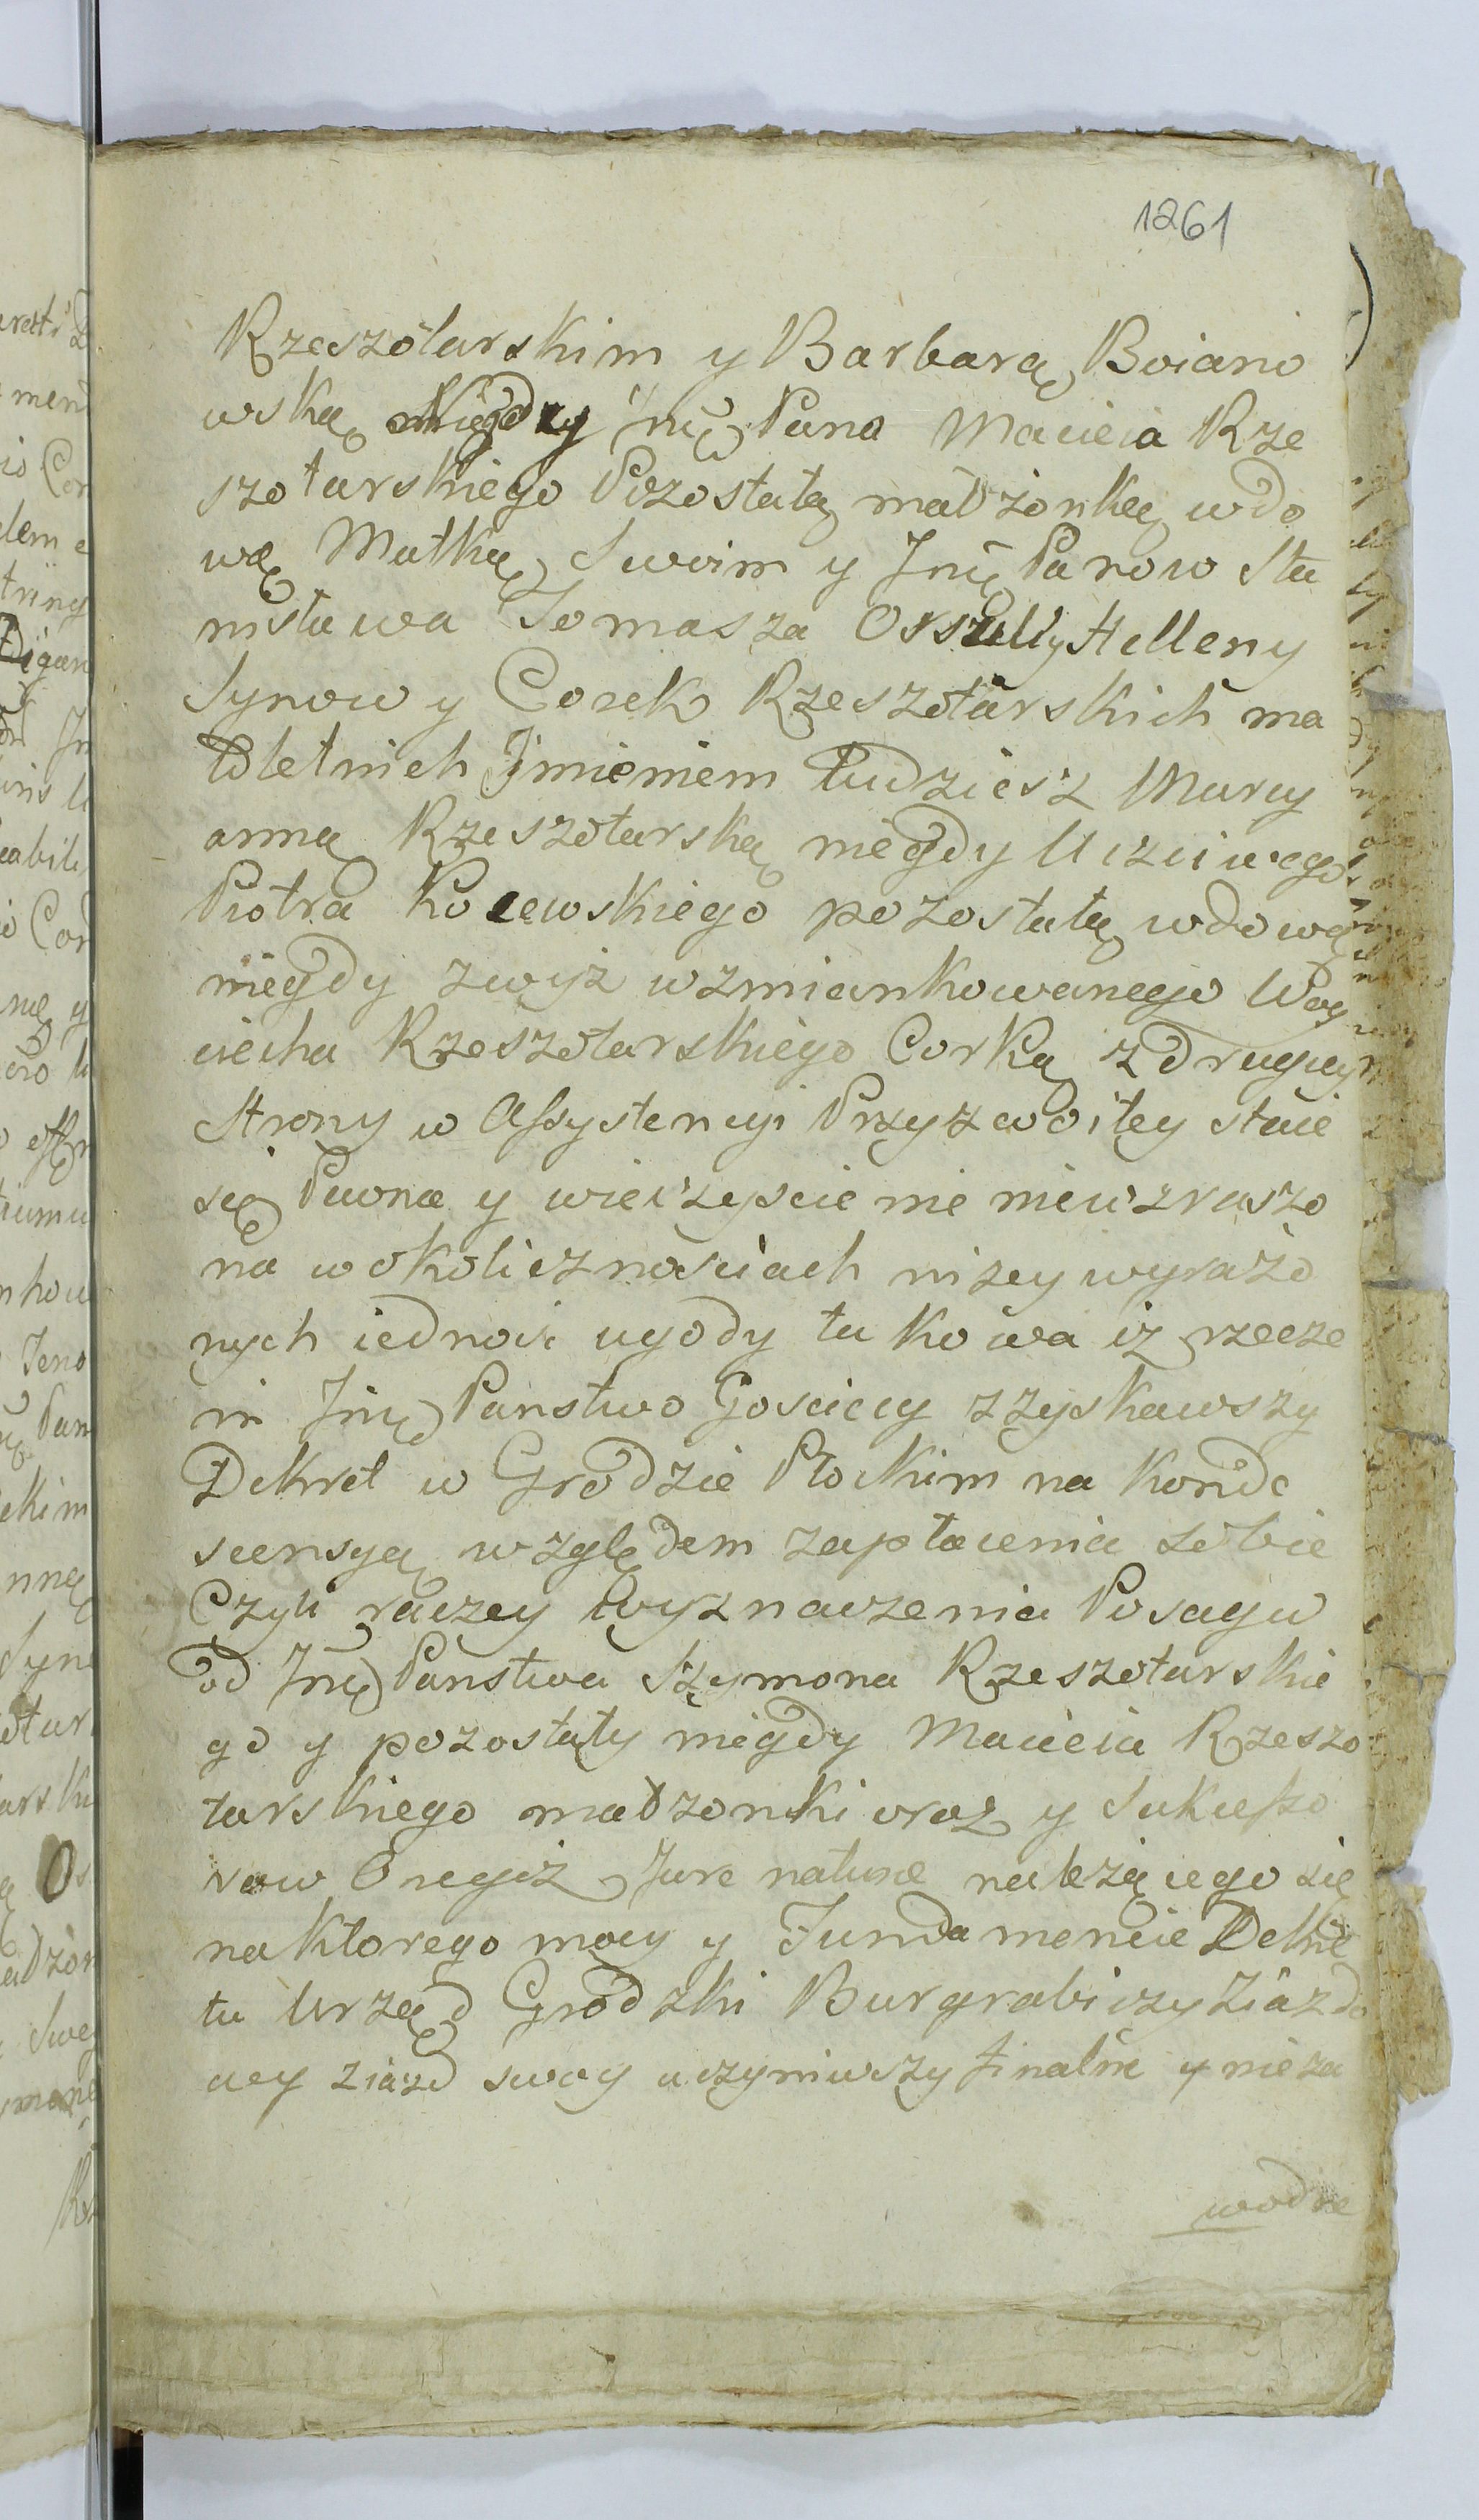 1261
Rzeszotarskim y Barbarą Boiano
wską Niegdy Jmc Pana Macieia Rze
szotarskiego Pozostałą małżonką wdo
wą Matką Swoim y Jmć Panow Sta
nisława Tomasza Orszuli y Helleny
Synow y Corek Rzeszotarskich ma
łoletnich Jmieniem tudziesz Mary
anną Rzeszotarską niegdy Uczciwego
Piotra Kocewskiego pozostałą wdową
niegdy zwyż wzmiankowanego Woy
ciecha Rzeszotarskiego Corką z drugiey
Strony w Assystencyi Przyzwoitey staie
się Pewna y wieczyscie nie niewzruszo
na w okolicznosciach nizey wyrażo
nych iednosc ugody takowa iz rzecze
ni Jmć Panstwo Gosciccy zzyskawszy
Dekret w Grodzie Płockim na Konde
scensyą względem zapłacenia sobie
Czyli raczey Wyznaczenia Posagu
od Jmć Panstwa Szymona Rzeszotarskie
go y pozostały niegdy Macieia Rzeszo
tarskiego małzonki oraz y Sukcesso
row Onegoż Jure naturæ należącego się
na ktorego mocy y Fundamencie Dekre
tu Urząd Grodzki Burgrabiczy Ziazdo
wy ziazd swoy uczyniwszy finalne y nieza
wodne